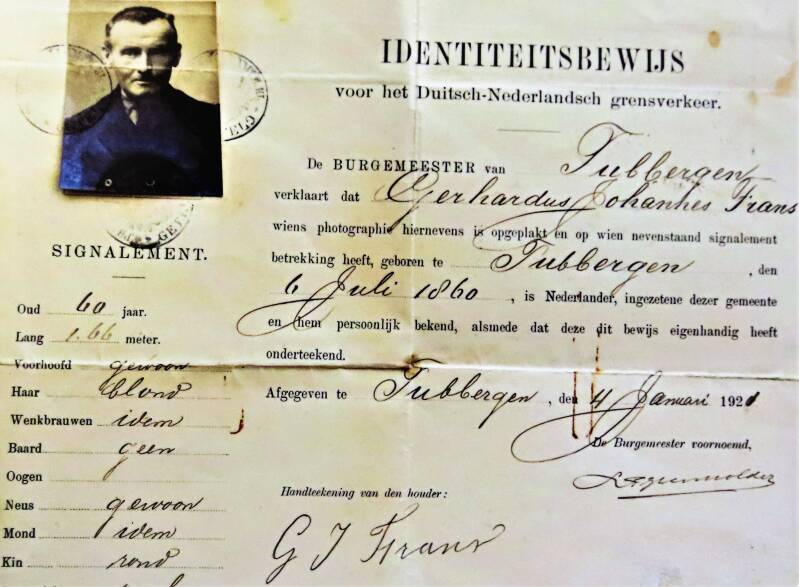 IDENTITEITSBEWIJS
voor het Duitsch-Nederlandsch grensverkeer.
De BURGEMEESTER van Tubbergen
verklaart dat Gerhardus Johannes Frans
wiens photographie hiernevens is opgeplakt en op wien nevenstaand signalement
betrekking heeft, geboren te Tubbergen, den
6 Juli 1860, is Nederlander, ingezetene dezer gemeente
en hem persoonlijk bekend, alsmede dat deze dit bewijs eigenhandig heeft
onderteekend.
Afgegeven te Tubbergen, den 4 Januari 1921
De Burgemeester voornoemd,
Handteekening van den houder:
G J Frans
SIGNALEMENT.
Oud 60 jaar.
Lang 1.66 meter.
Voorhoofd gewoon
Haar blond
Wenkbrauwen idem
Baard geen
Oogen
Neus gewoon
Mond idem
Kin rond